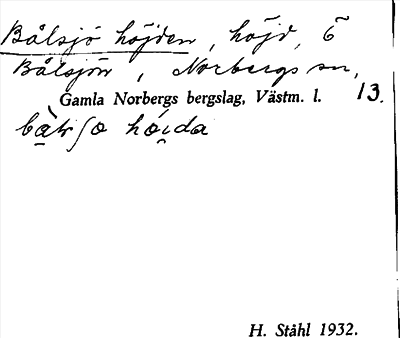 Bålsjö höjden, höjd, Ö
Bålsjön, Norbergs sn,
Gamla Norbergs bergslag, Västm. l. 13.
H. Ståhl 1932.